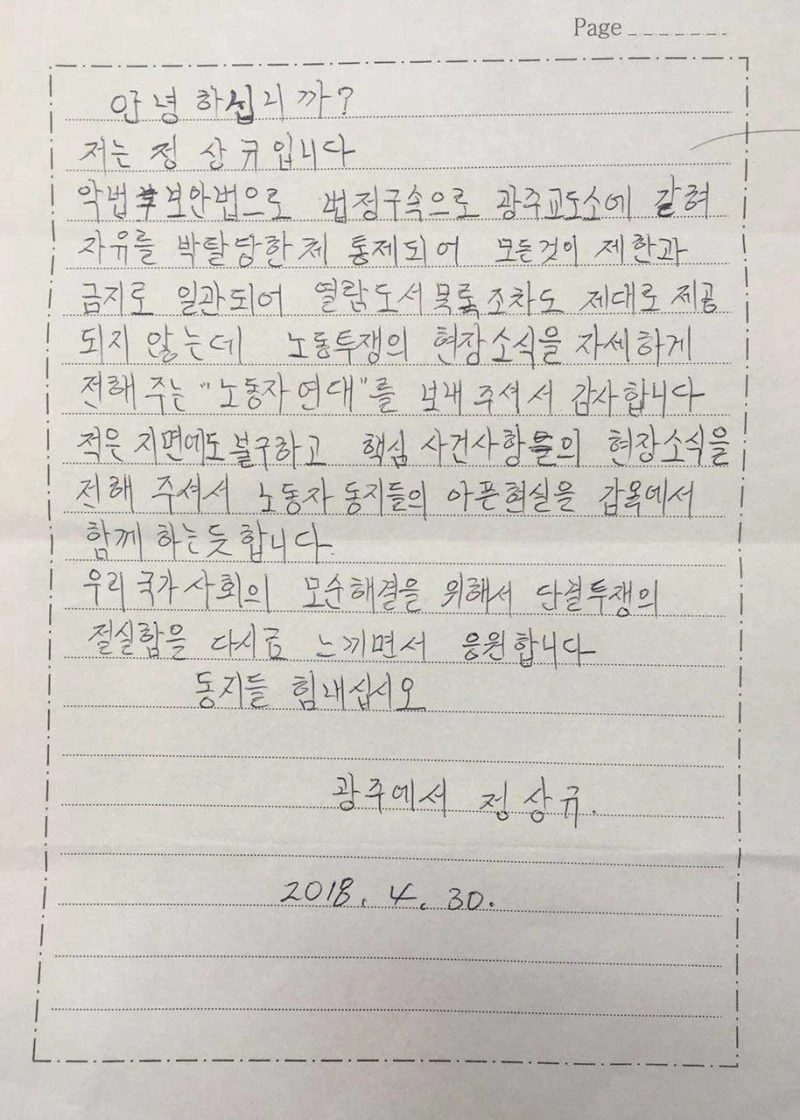 Page
안녕하십니까?
저는 정상규입니다
악법 보안법으로 법정구속으로 광주교도소에 갇혀
자유를 박탈당한체 통제되어 모든것이 제한과
금지로 일관되어 열람도서목록조차도 제대로 제공
되지 않는데 노동투쟁의 현장소식을 자세하게
전해 주는 "노동자 연대"를 보내 주셔서 감사합니다
적은 지면에도불구하고 핵심 사건사항들의 현장소식을
전해 주셔서 노동자 동지들의 아픈현실을 감옥에서
함께 하는듯 합니다.
우리 국가 사회의 모순해결을 위해서 단결투쟁의
절실함을 다시금 느끼면서 응원합니다
동지들 힘내십시오
광주에서 정상규.
2018. 4. 30.